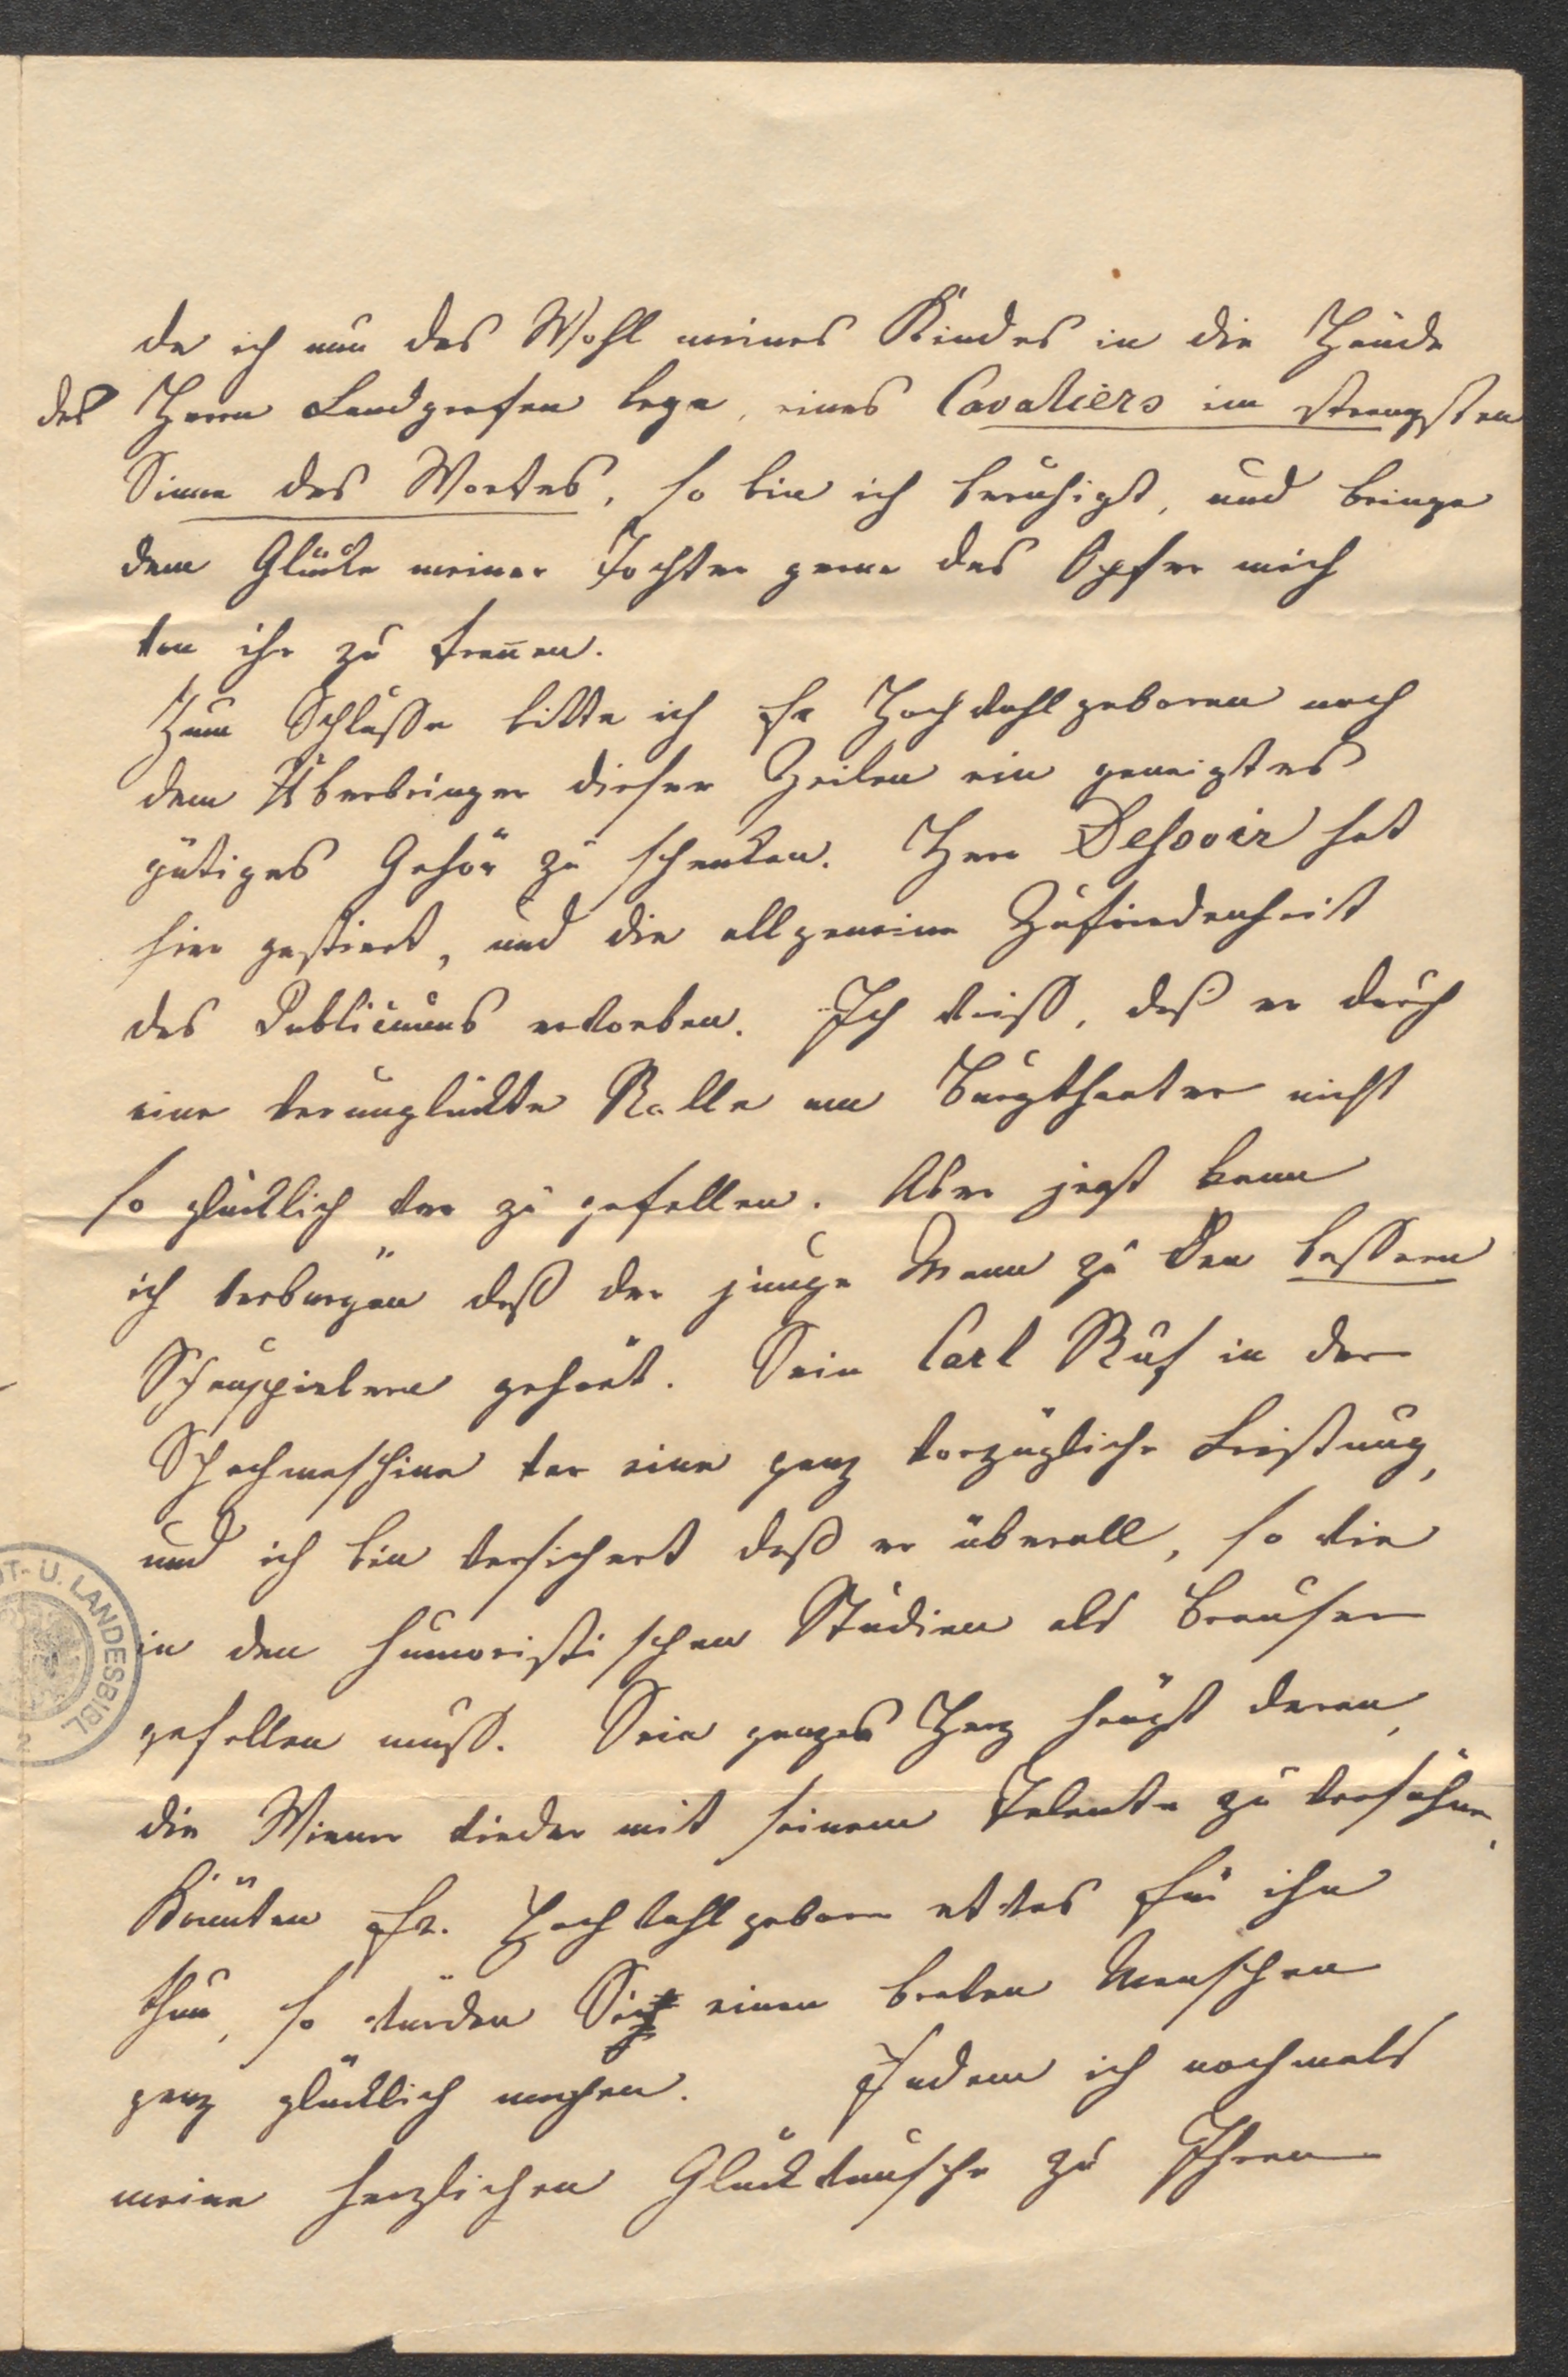 da ich nun das Wohl meines Kindes in die Hände
des Herrn Landgrafen lege, eines Cavaliers im strengsten
Sinne des Wortes, so bin ich beruhigt, und bringe
dem Glücke meiner Tochter gerne das Opfer mich
von ihr zu trenen.
Zum Schlusse bitte ich Er Hochwohlgeboren noch
dem Überbringer dieser Zeilen ein geneigtes
gütiges Gehör zu schenken. Herr Dessoir hat
hier gastiert, und die allgemeine Zufriedenheit
des Publicums erworben. Ich weiß, daß er durch
eine verunglückte Rolle am Burgtheater nicht
so glücklich war zu gefallen. Aber jezt kann
ich verbürgen daß der junge Mann zu den bessern
Schauspielern gehört. Sein Carl Ruf in der
Schachmaschine war eine ganz vorzügliche Leistung,
und ich bin versichert daß er überall, so wie
in den humoristischen Studien als Brauser
gefallen muß. Sein ganzes Herz hängt daran,
die Wiener wieder mit seinem Talente zu versöhnen,
Könnten Er. Hochwohlgeborn etwas für ihn
thun, so würden Sie einen braven Menschen
ganz glücklich machen. Indem ich nochmals
meine herzlichen Glückwünsche zu Ihrem
T- U. LANDESBIBL
2